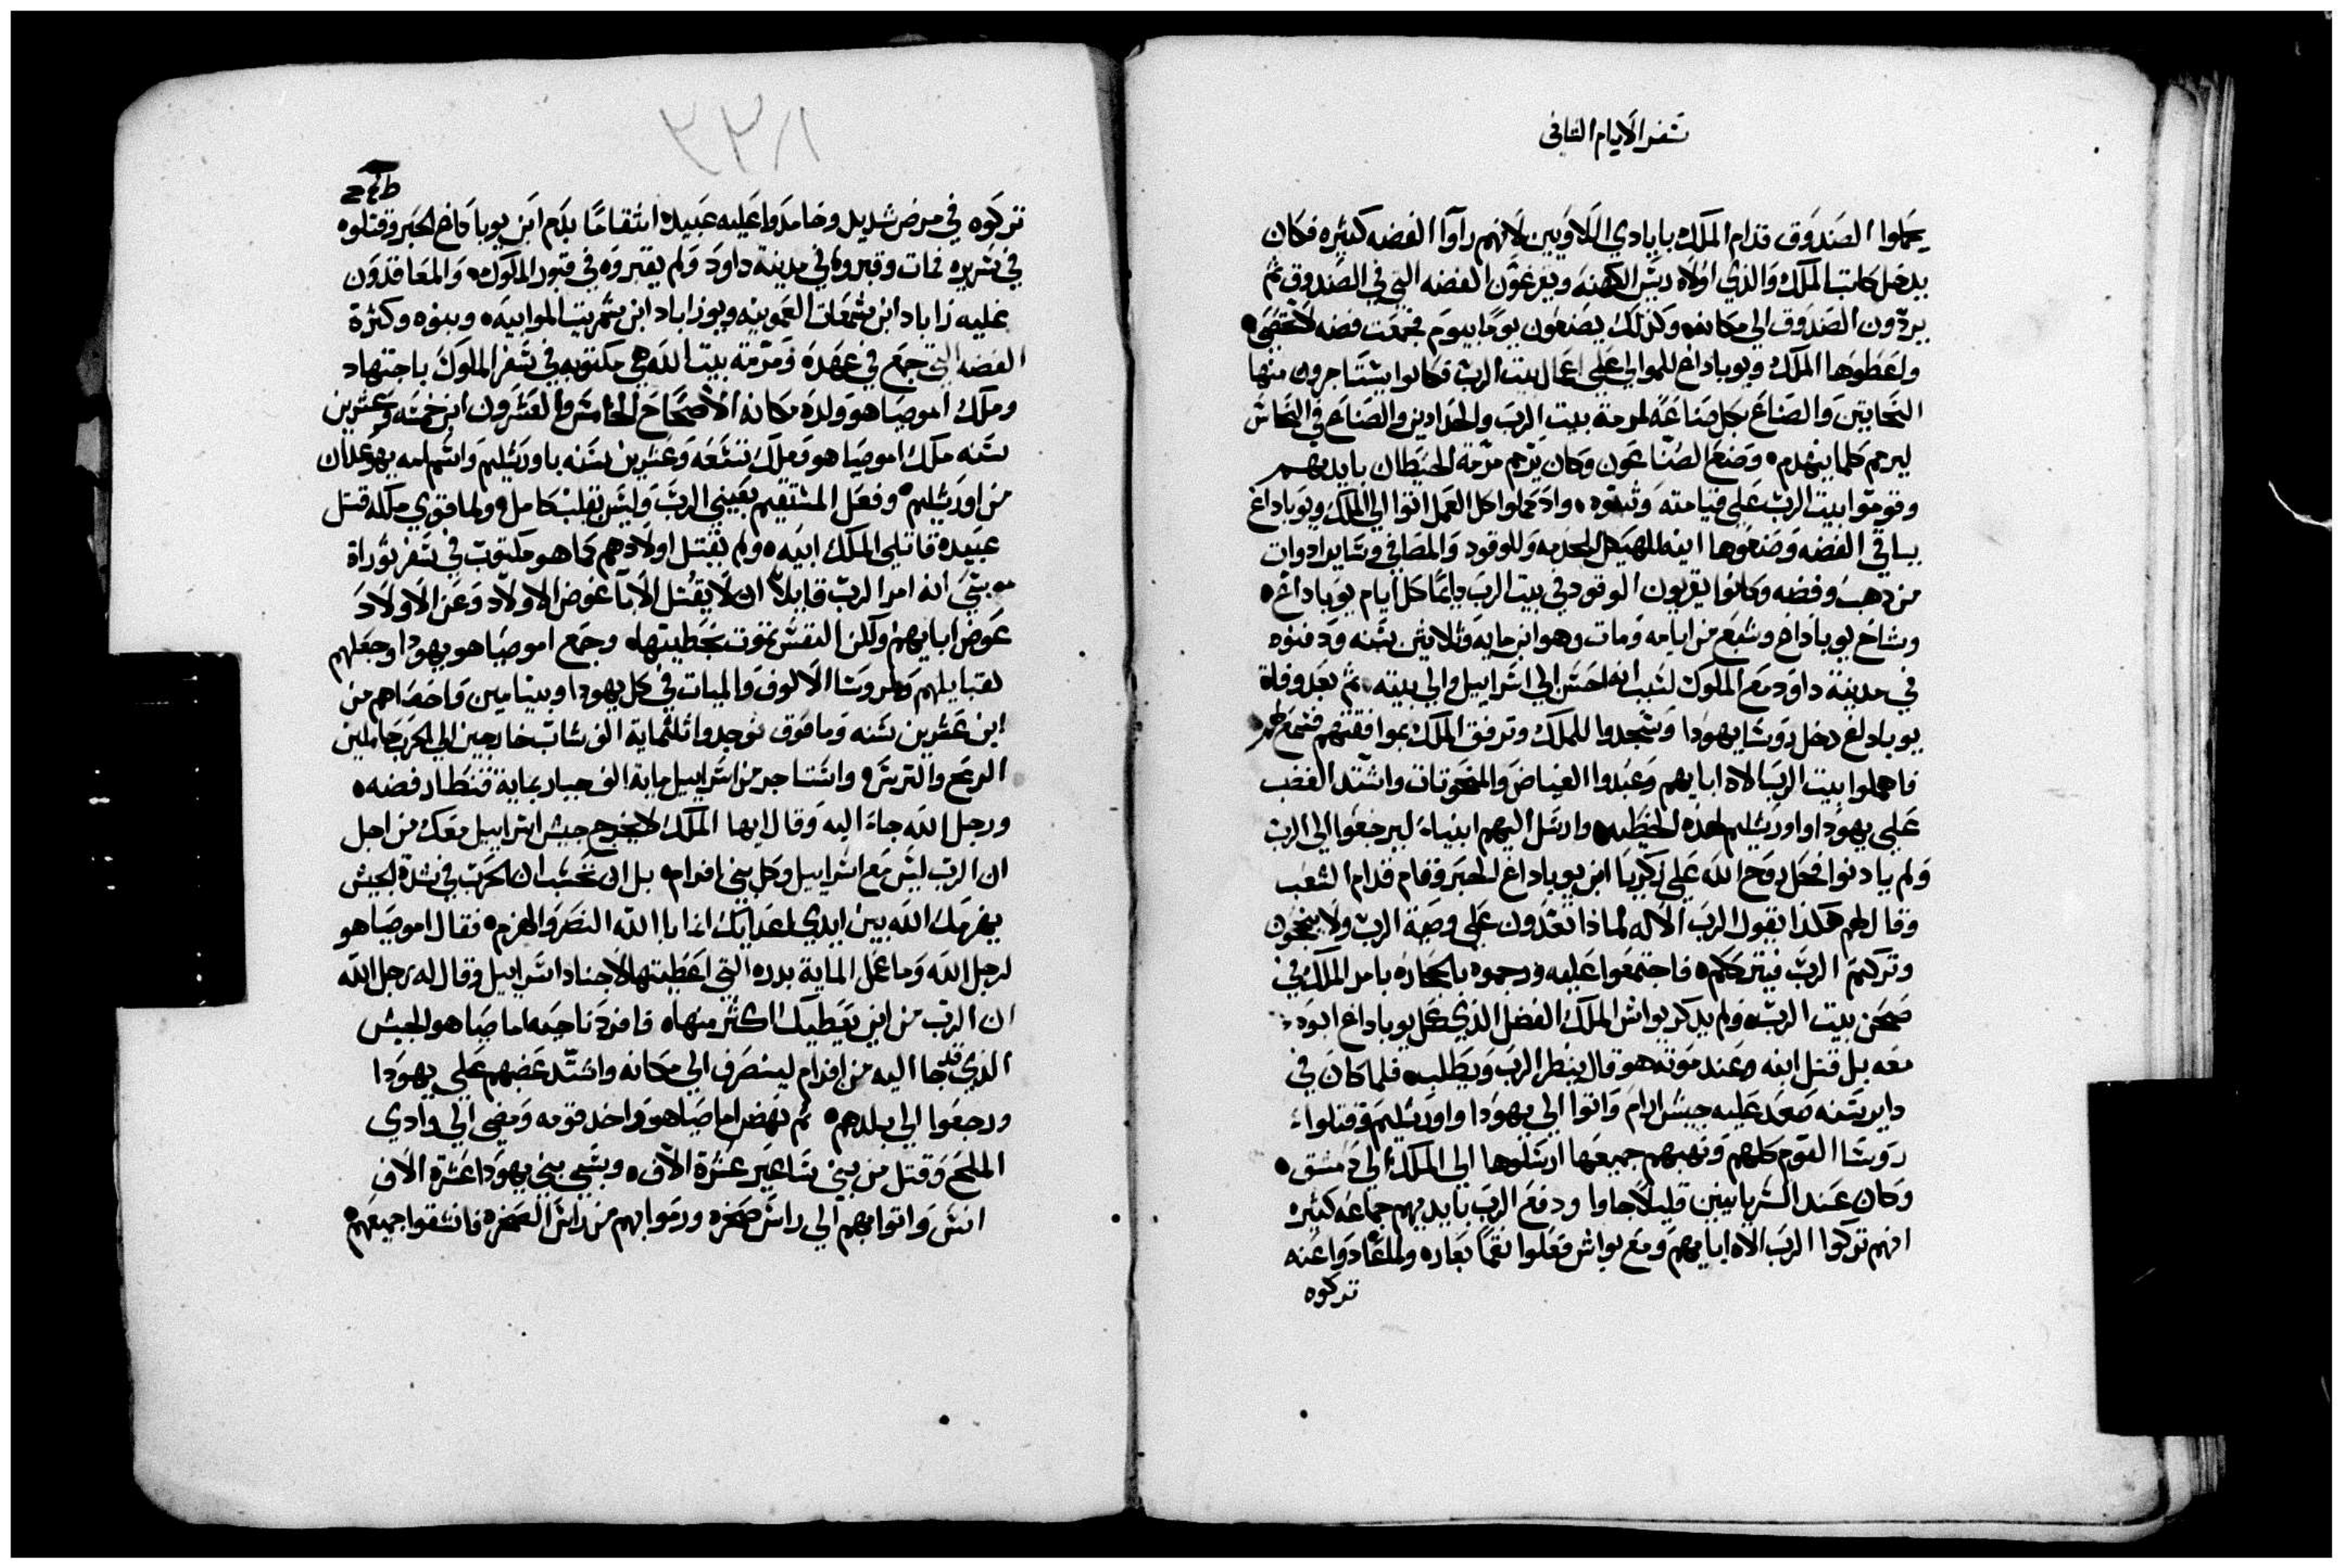 سفر الايام الثاني
يحملوا الصندوق قدام الملك بايادي اللاويين لانهم راوا الفضه كثيره فكان
يدخل كاتب الملك والذي اولاه ريس الكهنه ويفرغون الفضه التي في الصندوق ثم
يردون الصندوق الي مكانه وكذلك يصنعون يومًا بيوم فجمعت فضه لا تحصي
واعطوها الملك ويوياداع للموالي علي اعمال بيت الرب فكانوا يستاجرون منها
النحاتين والصناع بكل صناعه لمرمة بيت الرب والحدادين والصناع في النحاس
ليرمم كلما ينهدم وصنع الصناعون وكان يترمم مرمة الحيطان بايديهم
وقوموا بيت الرب علي قيامته وثبتوه واذ كملوا كل العمل اتوا الي الملك ويوياداع
بباقي الفضه وصنعوها انيه للهيكل للخدمه وللوقود والمصافي وساير ادوات
من دهب وفضه وكانوا يقربون الوقود في بيت الرب دايمًا كل ايام يوياداع
وشاخ يوياداع وشبع من ايامه ومات وهو ابن مايه وثلاثين سنه ودفنوه
في مدينة داود مع الملوك لسبب انه احسن الي اسراييل والي بيته ثم بعد وفاة
يوياداع دخل روسا يهودا وسجدوا للملك وترفق الملك بموافقتهم فسمع لهم
فاهملوا بيت الرب الاه ابايهم وعبدوا الغياض والمنحوتات واشتد الغضب
علي يهودا واورشليم لهذه الخطيه وارسل اليهم انبياءً ليرجعوا الي الرب
ولم يادنوا فحل روح الله علي زكريا ابن يوياداع الحبر وقام قدام الشعب
وقال لهم هكذا يقول الرب الاله لماذا تعدون علي وصية الرب ولا ينجحون
وتركتم الرب فيترككم فاجتمعوا عليه ورجموه بالحجاره بامر الملك في
صحن بيت الرب ولم يذكر يواش الملك الفضل الذي عمل يوياداع ابوه
معه بل قتل ابنه وعند موته هو قال ينظر الرب ويطلب فلما كان في
داير سنه صعد عليه جيش ارام واتوا الي يهودا واورشليم وقتلوا
روسا القوم كلهم ونهبهم جميعها ارسلوها الي الملك الي دمشق
وكان عند السريانيين قليلاً جاوا ودفع الرب بايديهم جماعه كثيره
انهم تركوا الرب الاه ابايهم ومع يواش فعلوا نقمًا بعاره ولما عادوا عنه
تركوه
تركوه في مرض شديد وخامروا عليه عبيده انتقامًا بدم ابن يوياداع الحبر وقتلوه
في سريره فمات وقبروه في مدينة داود ولم يقبروه في قبور الملوك والمعاقدون
عليه زاباد ابن شمعات العمونيه ويوزاباد ابن شمريت الموابيه وبنوه وكثرة
الفضه التي جمع في عهده ومرمة بيت الله هي مكتوبه في سفر الملوك باجتهاد
وملك اموصياهو ولده مكانه الاصحاح الخامس والعشرون ابن خمسه وعشرين
سنه ملك اموصياهو وملك تسعه وعشرين سنه باورشليم واسم امه يهوعدان
من اورشليم وفعل المستقيم بعيني الرب وليس بقلب كامل ولما قوي ملكه قتل
عبيده قاتلي الملك ابيه ولم يقتل اولادهم كما هو مكتوب في سفر توراة
موسي انه امر الرب قايلاً ان لا يقتل الابا عوض الاولاد وعن الاولاد
عوض ابايهم ولكن النفس تموت بخطيتها وجمع اموصياهو يهودا وجعلهم
لقبايلهم وروسا الالوف والميات في كل يهودا وبنيامين واحصاهم من
ابن عشرين سنه وما فوق فوجدوا ثلثماية الف شاب خارجين الي الحرب حاملين
الرمح والترس واستاجر من اسراييل ماية الف جبار بماية قنطار فضه
ورجل الله جاء اليه وقال ايها الملك لا يخرج جيش اسراييل معك من اجل
ان الرب ليس مع اسراييل وكل بني افرام بل ان تحسب ان الحرب في شدة الجيش
يقهرك الله بين ايدي اعدايك انما با الله النصر والهزم فقال اموصياهو
لرجل الله وما عمل الماية بدره التي اعطيتها لاجناد اسراييل وقال له رجل الله
ان الرب من اين يعطيك اكثر منها فافرد ناحيه اماصياهو الجيش
الذي قد جا اليه من افرام لينصرف الي مكانه واشتد غضبهم علي يهودا
ورجعوا الي بلدهم ثم نهض اماصياهو واخد قومه ومضي الي وادي
الملح وقتل من بني ساعير عشرة الاف وسبي بني يهودا عشرة الاف
انس واتوا بهم الي راس صخره ورموا بهم من راس الصخره فانشقوا جميعهم